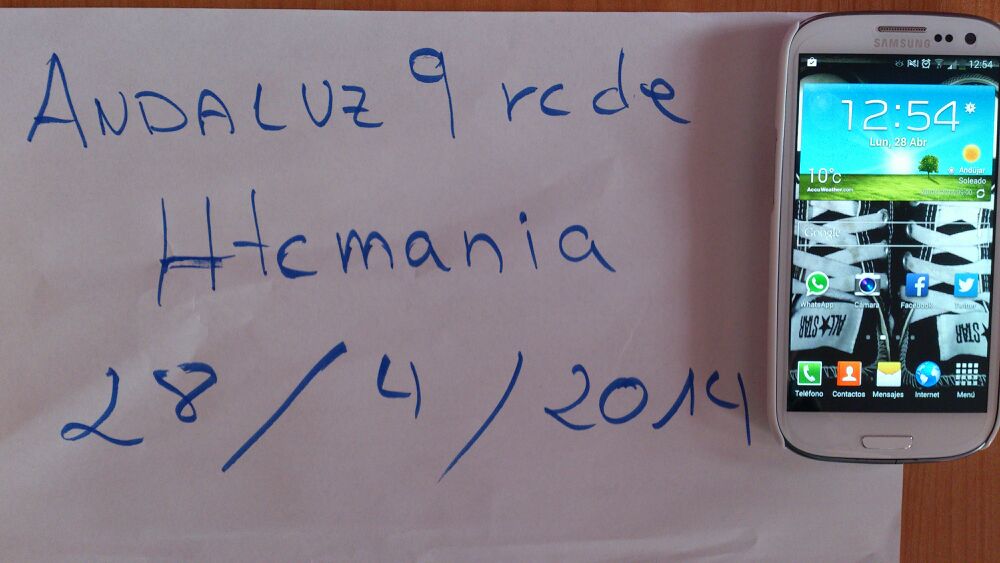 ANDALUZ 9 rcde
Htcmania
28/4/2014
SAMSUNG
12:54
12:54
Lun, 28 Abr
10°C
AccuWeather.com
Andújar
Soleado
Google
WhatsApp Cámara Facebook Twitter
ALL STAR
ALL STAR
Teléfono Contactos Mensajes Internet Menú